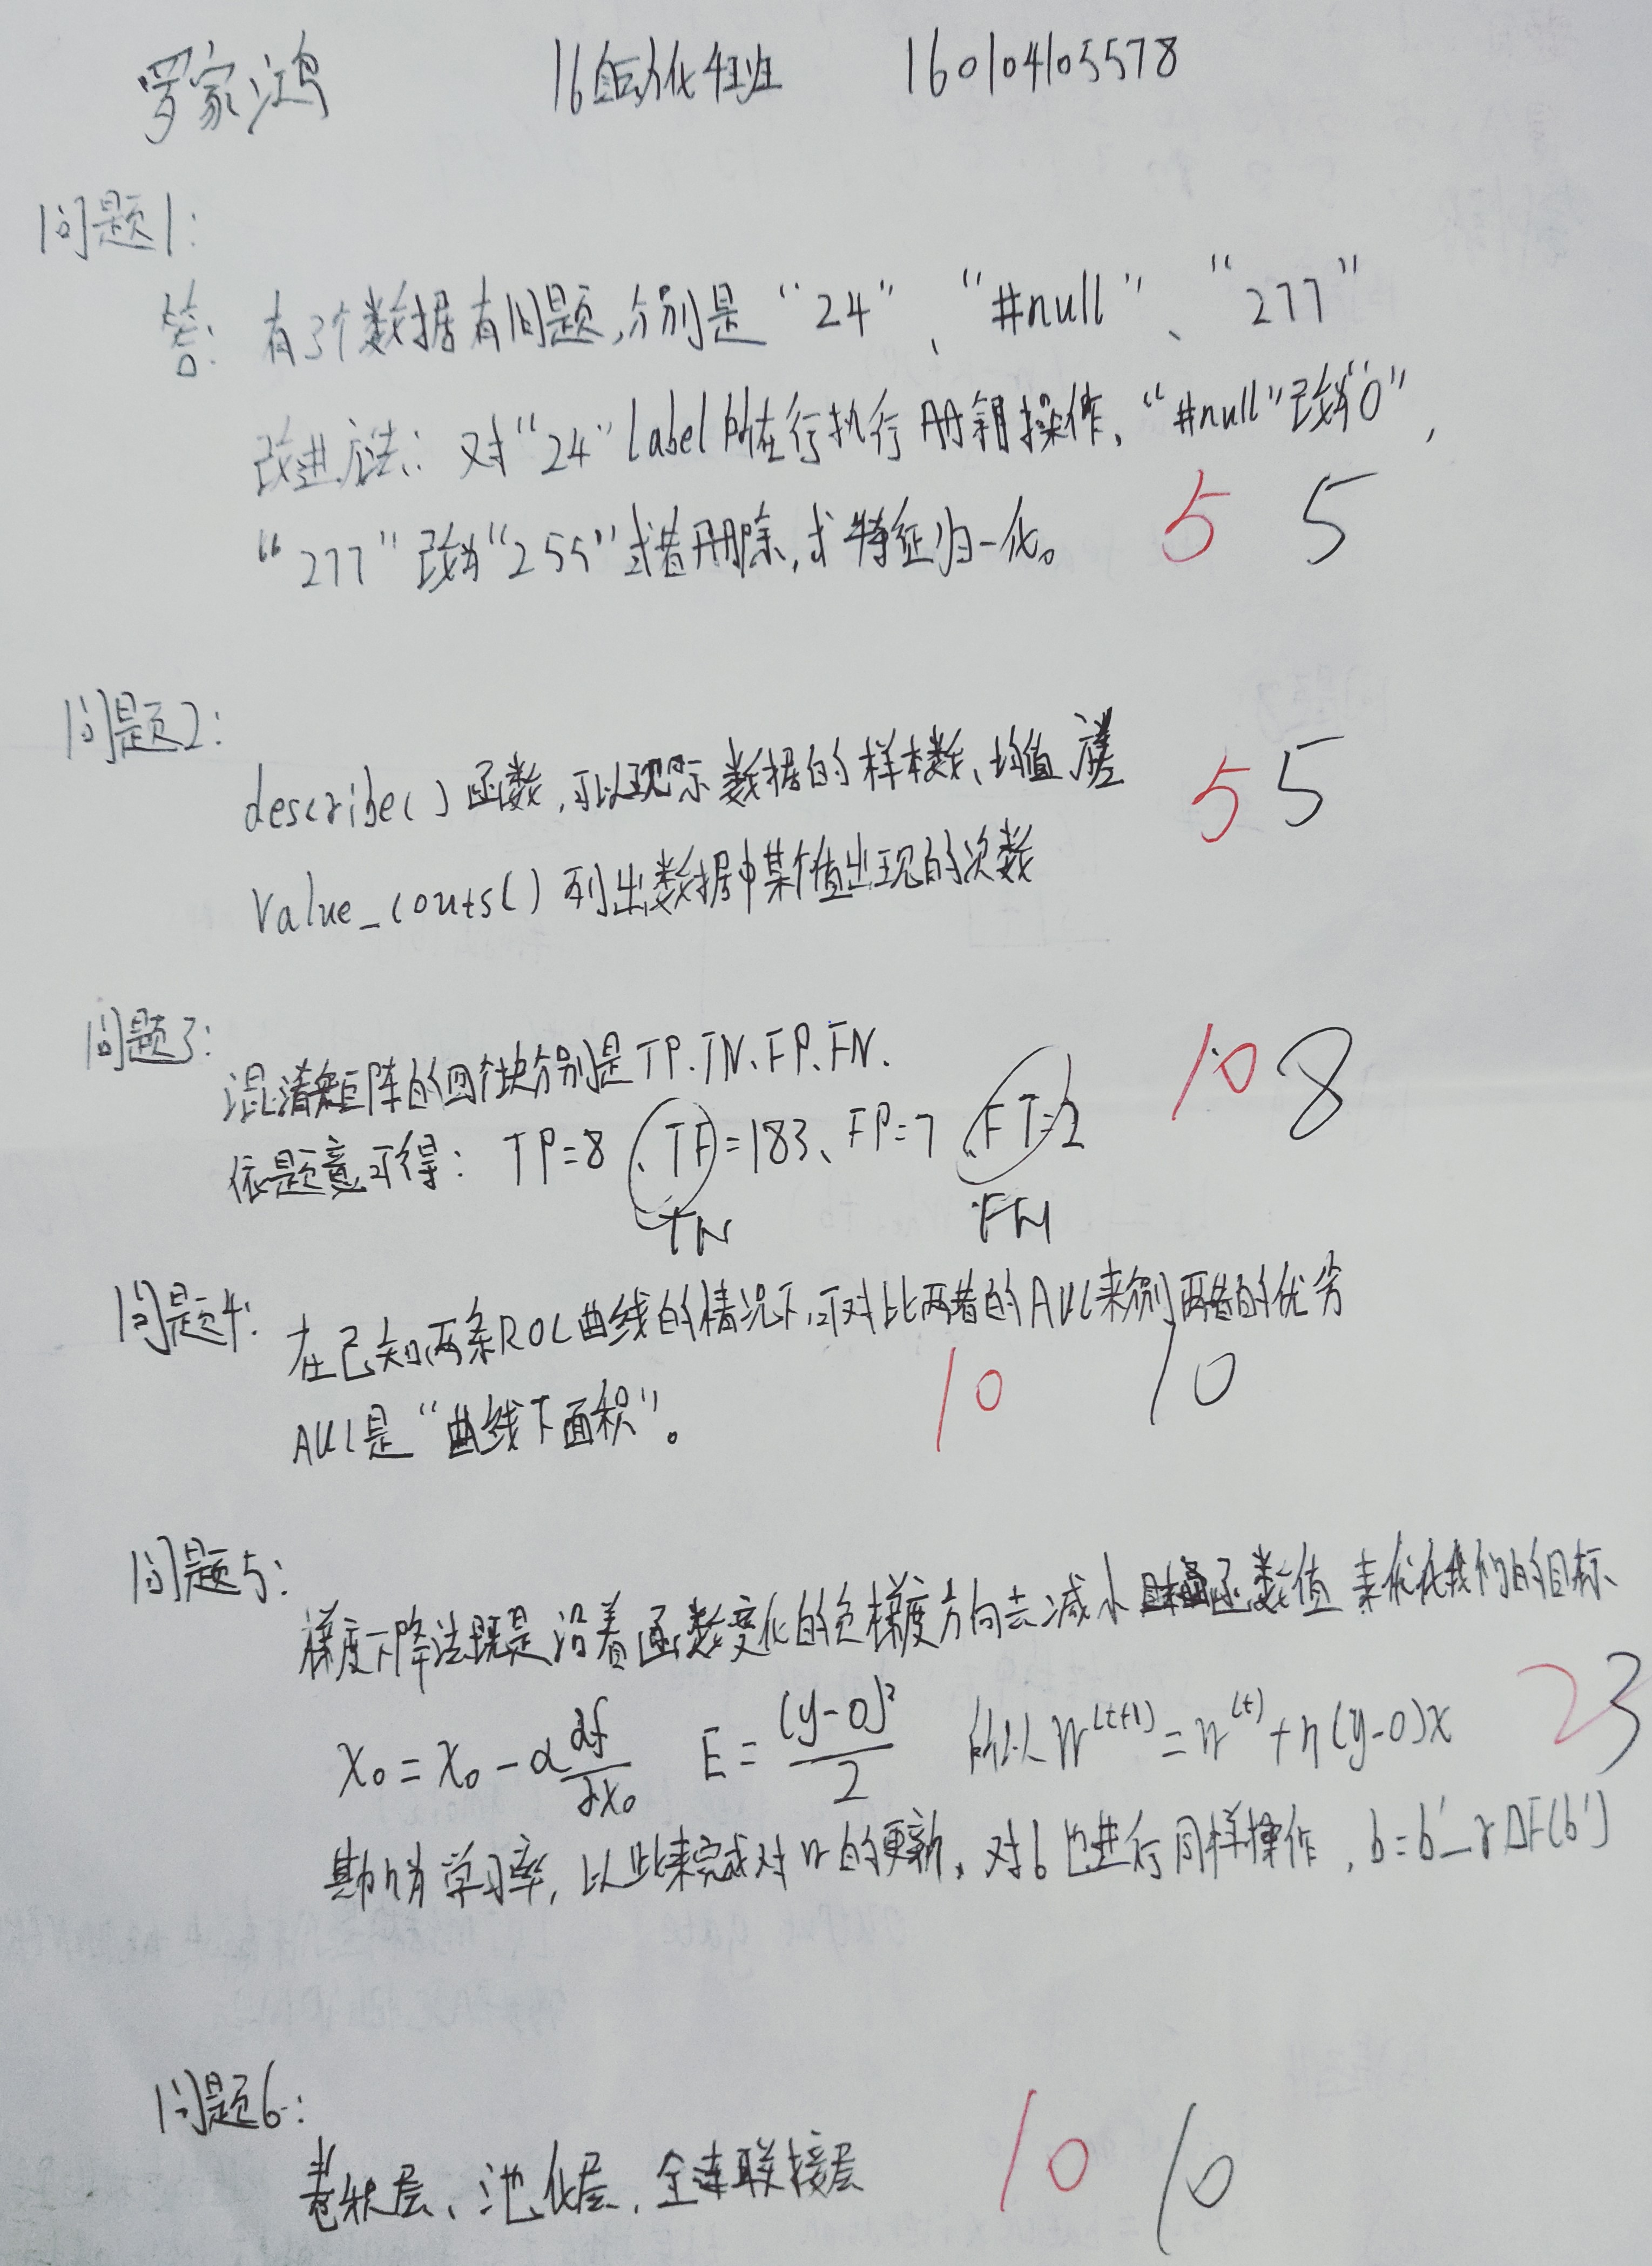 罗家鸿 16自动化4班 160104105578
问题1:
答: 有3个数据有问题,分别是“24”、“#null”、“277”
改进方法: 对“24”label所在行执行删除操作、“#null”改为“0”,
“277”改为“255”或者删除,或特征归一化。 5 5
问题2:
describe()函数,可以现示数据的样本数、均值 方差 5 5
Value_couts() 列出数据中某个值出现的次数
问题3:
混淆矩阵的四个块分别是TP.TN、FP、FN. 10 8
依题意可得: TP=8、TF=183、FP=7、FT=2
TN FN
问题4: 在已知两条ROC曲线的情况下,可对比两者的AUC来判别两者的优劣
AUC是“曲线下面积”。 10 10
问题5:
梯度下降法既是沿着函数变化的负梯度方向去减小函数值 来优化我们的目标
x₀=x₀-α df/dx₀ E=(y-0)²/2 所以 W⁽ᵗ⁺¹⁾=w⁽ᵗ⁾+η(y-0)x 23
其中η为学习率,以此来完成对w的更新、对b也进行同样操作,b=b'-γΔF(b')
问题6:
卷积层、池化层、全连联接层 10 10